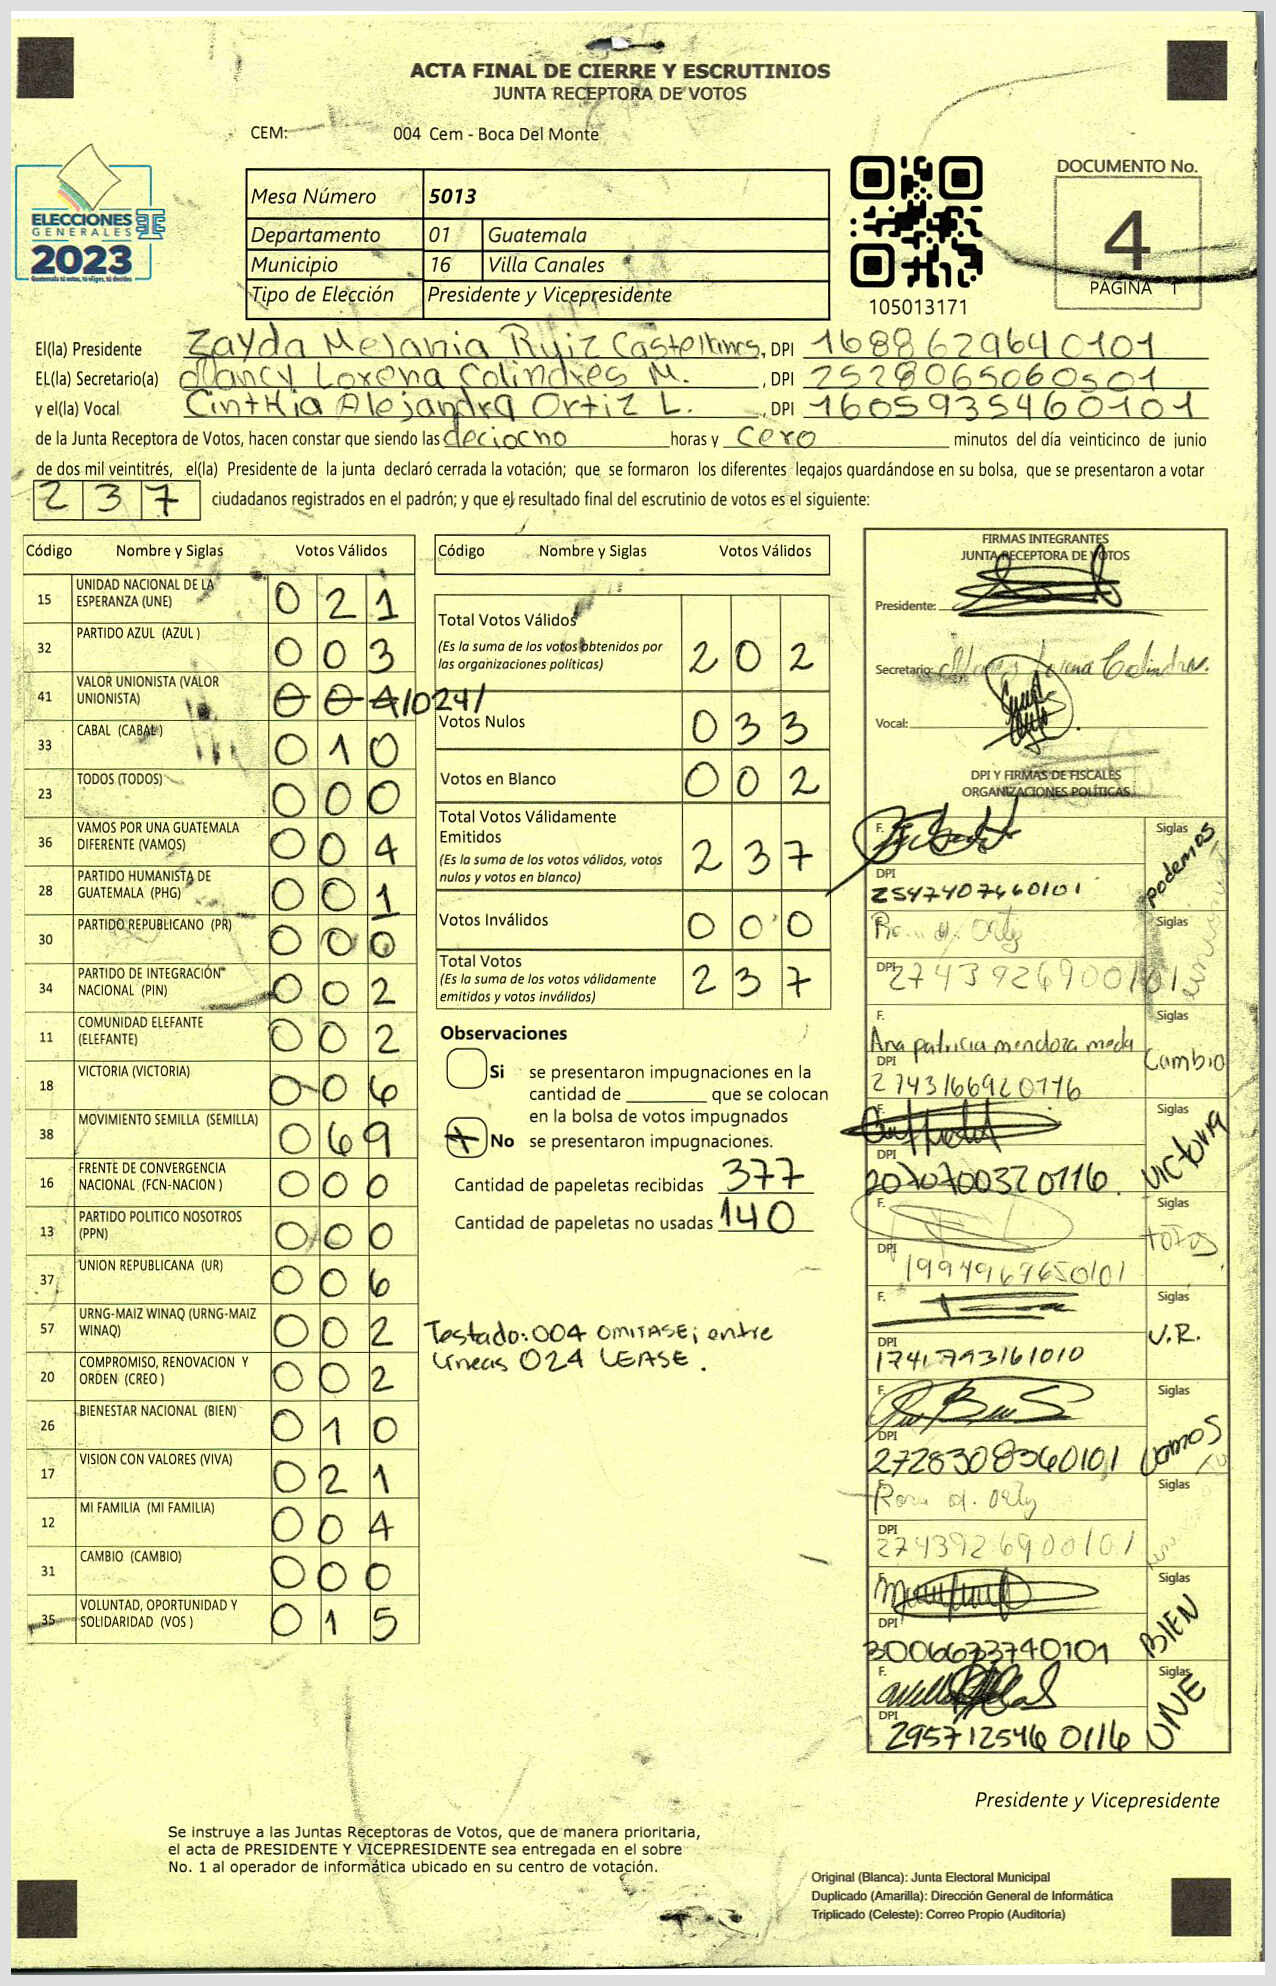 ACTA FINAL DE CIERRE Y ESCRUTINIOS
JUNTA RECEPTORA DE VOTOS
CEM: 004 Cem - Boca Del Monte
ELECCIONES
GENERALES
2023
Guatemala tú votas, tú eliges, tú decides
Mesa Número 5013
Departamento 01 Guatemala
Municipio 16 Villa Canales
Tipo de Elección Presidente y Vicepresidente
105013171
DOCUMENTO No.
4
PAGINA 1
El(la) Presidente Zayda Melania Ruiz, DPI 1688629640101
EL(la) Secretario(a) Nancy Lorena Colindres M., DPI 2528065060501
y el(la) Vocal Cinthia Alejandra Ortiz L., DPI 1605935460101
de la Junta Receptora de Votos, hacen constar que siendo las deciocho horas y cero minutos del día veinticinco de junio
de dos mil veintitrés, el(la) Presidente de la junta declaró cerrada la votación; que se formaron los diferentes legajos quardándose en su bolsa, que se presentaron a votar
237 ciudadanos registrados en el padrón; y que el resultado final del escrutinio de votos es el siguiente:
Código Nombre y Siglas Votos Válidos
15 UNIDAD NACIONAL DE LA ESPERANZA (UNE) 021
32 PARTIDO AZUL (AZUL ) 003
41 VALOR UNIONISTA (VALOR UNIONISTA) 004 /024/
33 CABAL (CABAL ) 010
23 TODOS (TODOS) 000
36 VAMOS POR UNA GUATEMALA DIFERENTE (VAMOS) 004
28 PARTIDO HUMANISTA DE GUATEMALA (PHG) 001
30 PARTIDO REPUBLICANO (PR) 000
34 PARTIDO DE INTEGRACIÓN NACIONAL (PIN) 002
11 COMUNIDAD ELEFANTE (ELEFANTE) 002
18 VICTORIA (VICTORIA) 006
38 MOVIMIENTO SEMILLA (SEMILLA) 069
16 FRENTE DE CONVERGENCIA NACIONAL (FCN-NACION ) 000
13 PARTIDO POLITICO NOSOTROS (PPN) 000
37 UNION REPUBLICANA (UR) 006
57 URNG-MAIZ WINAQ (URNG-MAIZ WINAQ) 002
20 COMPROMISO, RENOVACION Y ORDEN (CREO ) 002
26 BIENESTAR NACIONAL (BIEN) 010
17 VISION CON VALORES (VIVA) 021
12 MI FAMILIA (MI FAMILIA) 004
31 CAMBIO (CAMBIO) 000
35 VOLUNTAD, OPORTUNIDAD Y SOLIDARIDAD (VOS ) 015
Código Nombre y Siglas Votos Válidos
Total Votos Válidos 202
(Es la suma de los votos obtenidos por
las organizaciones políticas)
Votos Nulos 033
Votos en Blanco 002
Total Votos Válidamente
Emitidos 237
(Es la suma de los votos válidos, votos
nulos y votos en blanco)
Votos Inválidos 000
Total Votos 237
(Es la suma de los votos válidamente
emitidos y votos inválidos)
Observaciones
Si se presentaron impugnaciones en la
cantidad de ________ que se colocan
en la bolsa de votos impugnados
No se presentaron impugnaciones.
Cantidad de papeletas recibidas 377
Cantidad de papeletas no usadas 140
Testado: 004 OMITASE; entre
líneas 024 LEASE.
FIRMAS INTEGRANTES
JUNTA RECEPTORA DE VOTOS
Presidente:
Secretario: Lorena Colindres.
Vocal:
DPI Y FIRMAS DE FISCALES
ORGANIZACIONES POLÍTICAS
F. Siglas podemos
DPI 2547407460101
F. Siglas
DPI 2743926900101
F. Ana patricia mendoza meda Siglas Cambio
DPI 2743166920116
F. Siglas VICTORIA
DPI 2070700320116
F. Siglas todos
DPI 1994969650101
F. Siglas U.R.
DPI 1741793161010
F. Siglas vamos
DPI 2728308360101
F. Siglas
DPI 2743926900101
F. Siglas BIEN
DPI 3006673740101
F. Siglas UNE
DPI 2957125460116
Presidente y Vicepresidente
Se instruye a las Juntas Receptoras de Votos, que de manera prioritaria,
el acta de PRESIDENTE Y VICEPRESIDENTE sea entregada en el sobre
No. 1 al operador de informática ubicado en su centro de votación.
Original (Blanca): Junta Electoral Municipal
Duplicado (Amarilla): Dirección General de Informática
Triplicado (Celeste): Correo Propio (Auditoria)